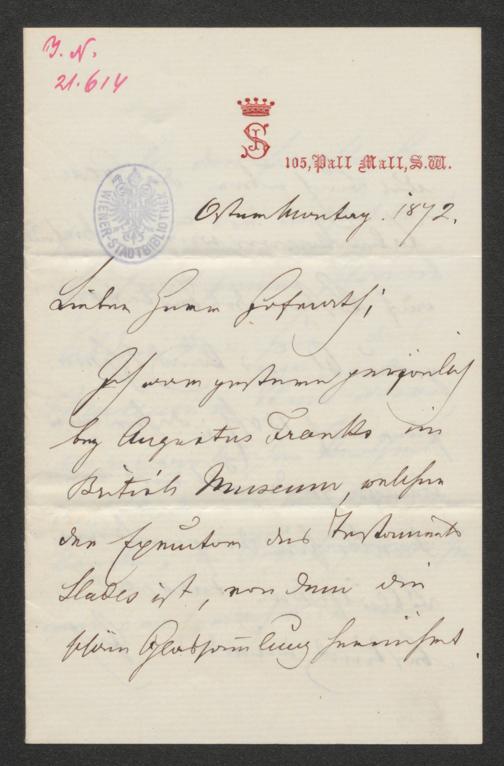 J. N.
21.614
105, Pall Mall, S.W.
WIENER-STADTBIBLIOTHEK
Ostermontag. 1872.
Lieber Herr Hofrath,
Ich war gestern persönlich
bey Augustus Franks im
British Museum, welcher
der Executor des Testaments
Slades ist, von dem die
schöne Glassam̅lung herrührt.